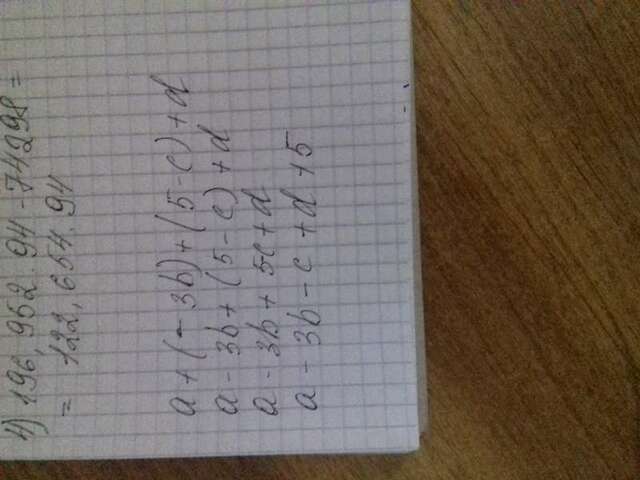 1) 196,952.94-74298=
= 122,654.94
a+(-3b)+(5-c)+d
a-3b+(5-c)+d
a-3b+5-c+d
a-3b-c+d+5